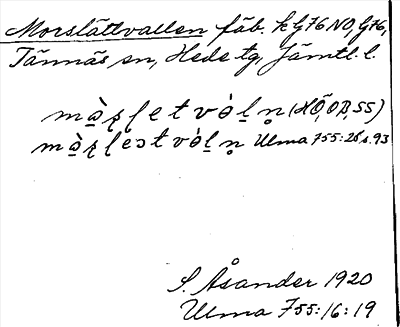 Morslättvallen fäb. k G76 NO, G76,
Tännäs sn, Hede tg, Jämtl. l.
mɑ̀ʂletvòl̥n̥ (HÖ, OB, SS)
Ulma 755:26, s. 93
S. Åsander 1920
Ulma 755:16:19